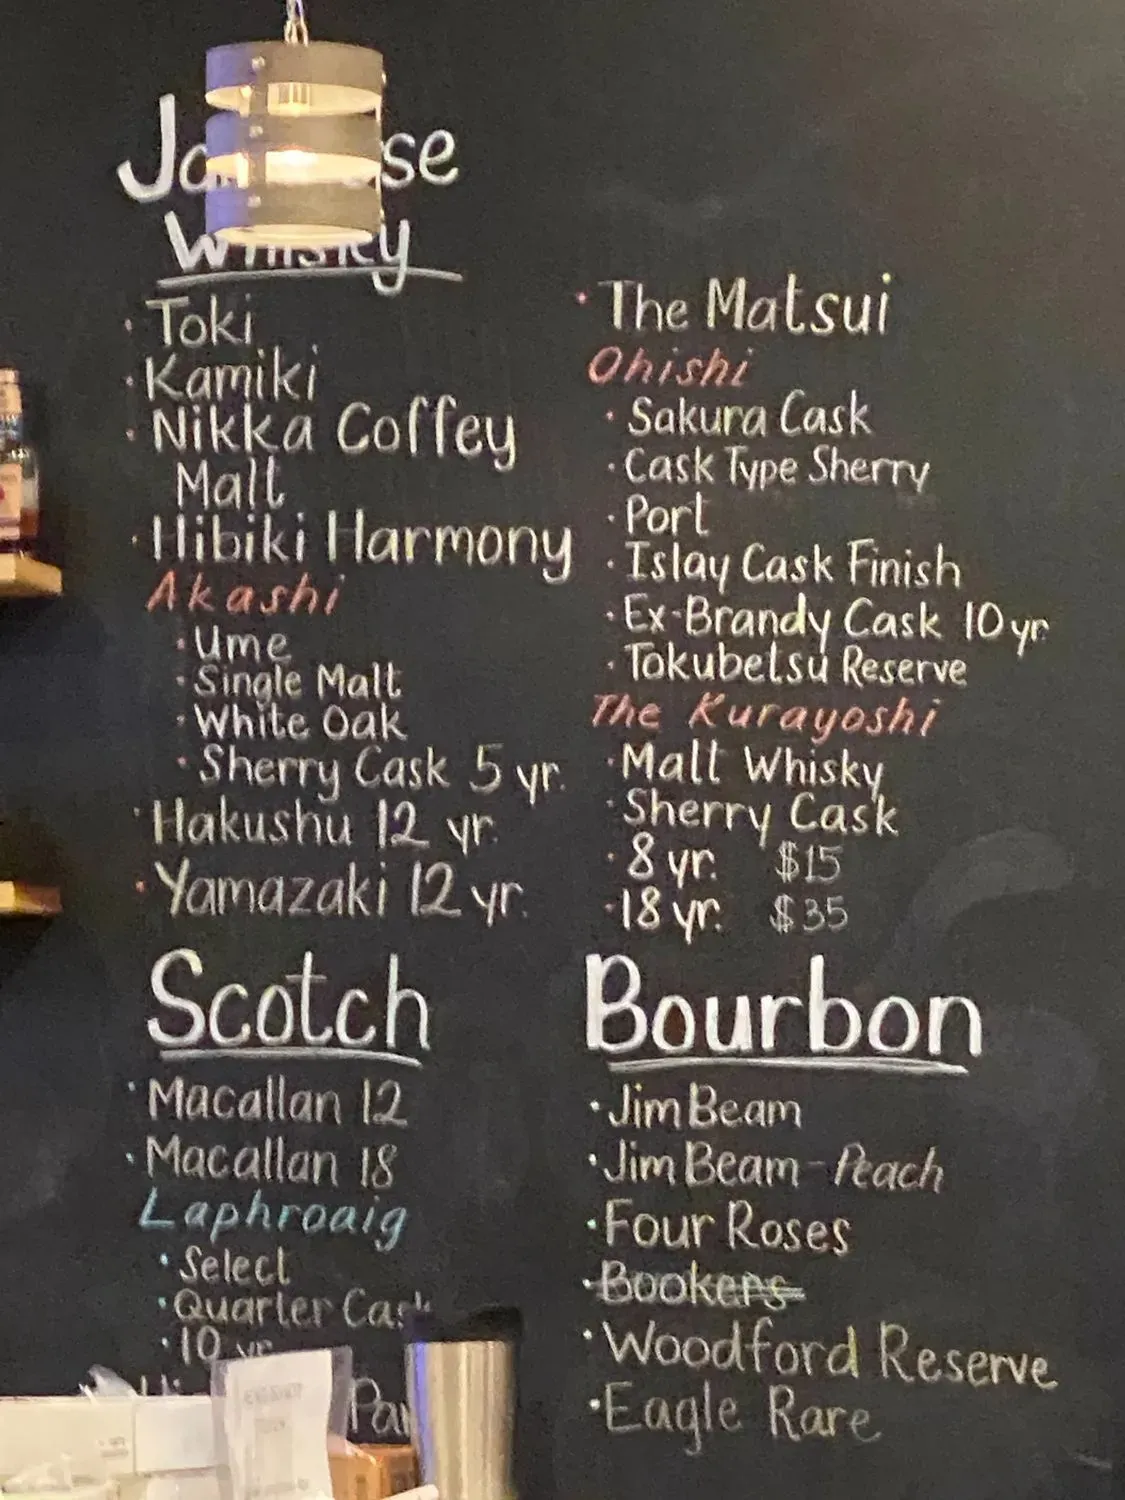 Whisky
Toki
Kamiki
Nikka Coffey
Malt
Hibiki Harmony
Akashi
Ume
Single Malt
White Oak
Sherry Cask 5 yr.
Hakushu 12 yr.
Yamazaki 12 yr.
The Matsui
Ohishi
Sakura Cask
Cask Type Sherry
Port
Islay Cask Finish
Ex-Brandy Cask 10 yr
Tokubetsu Reserve
The Kurayoshi
Malt Whisky
Sherry Cask
8 yr. $15
18 yr. $35
Scotch
Macallan 12
Macallan 18
Laphroaig
Select
Quarter Cask
10 yr
Bourbon
Jim Beam
Jim Beam - Peach
Four Roses
Bookers
Woodford Reserve
Eagle Rare